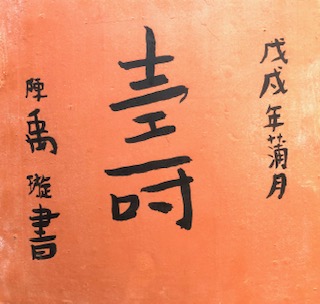 戊戌年蒲月
壽
陳禹璇書